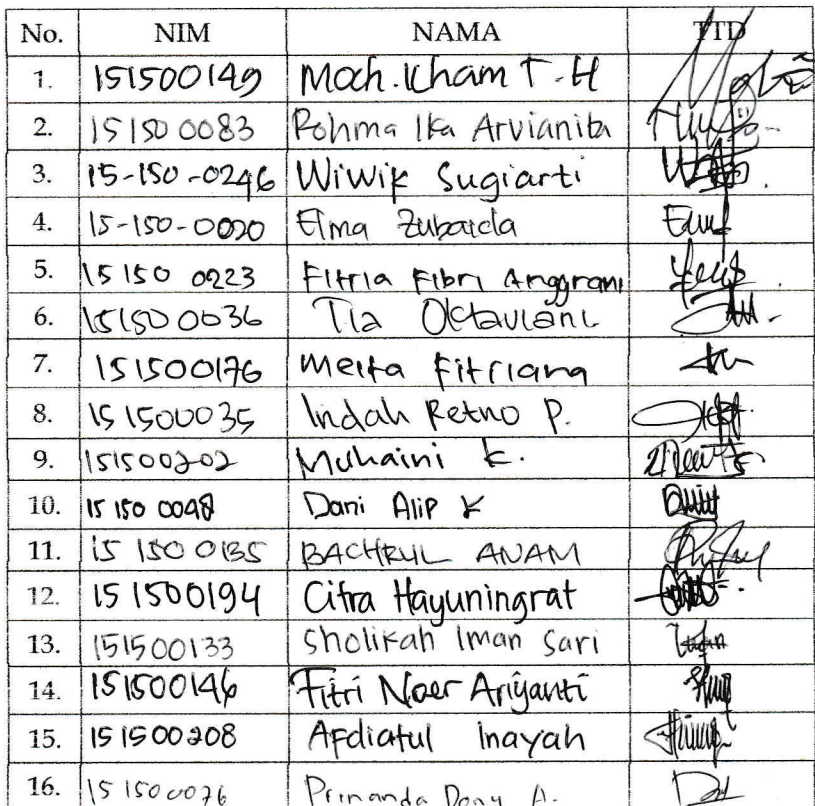 No. NIM NAMA TTD
1. 151500149 Moch. Ilham T.H
2. 15150 0083 Rohma Ika Arvianita
3. 15-150-0246 Wiwik Sugiarti
4. 15-150-0020 Elma Zubaida
5. 15150 0223 Fitria Fibri Anggrani
6. 151500036 Tia Oktaviani
7. 151500176 Meita Fitriana
8. 151500035 Indah Retno P.
9. 151500202 Muhaini K.
10. 15 150 0048 Dani Alip K
11. 15 150 0135 BACHRUL ANAM
12. 151500194 Citra Hayuningrat
13. 151500133 Sholikah Iman Sari
14. 151500146 Fitri Noer Ariyanti
15. 151500208 Afdiatul Inayah
16. 151500076 Prinanda Dony A.